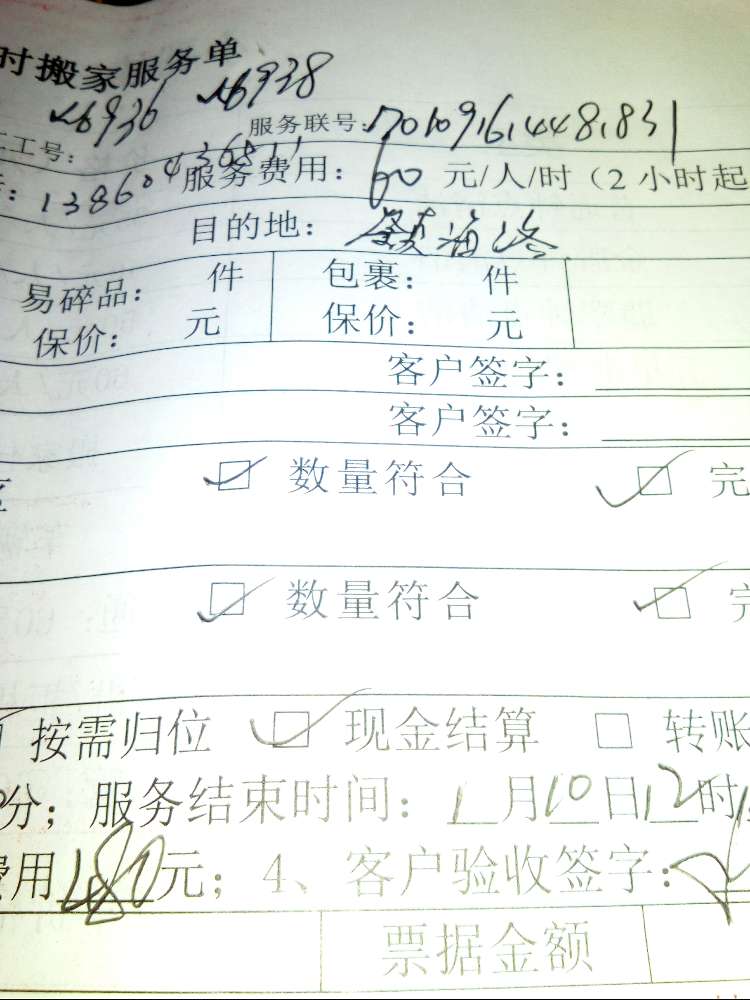 时搬家服务单
26936 26938
工号： 服务联号：
服务费用：60 元/人/时（2 小时起
目的地：
易碎品： 件 包裹： 件
保价： 元 保价： 元
客户签字：
客户签字：
☑ 数量符合 ☑ 完
☑ 数量符合 ☑
按需归位 ☑ 现金结算 □ 转账
分；服务结束时间：1月10日12时
费用480元；4、客户验收签字：
票据金额